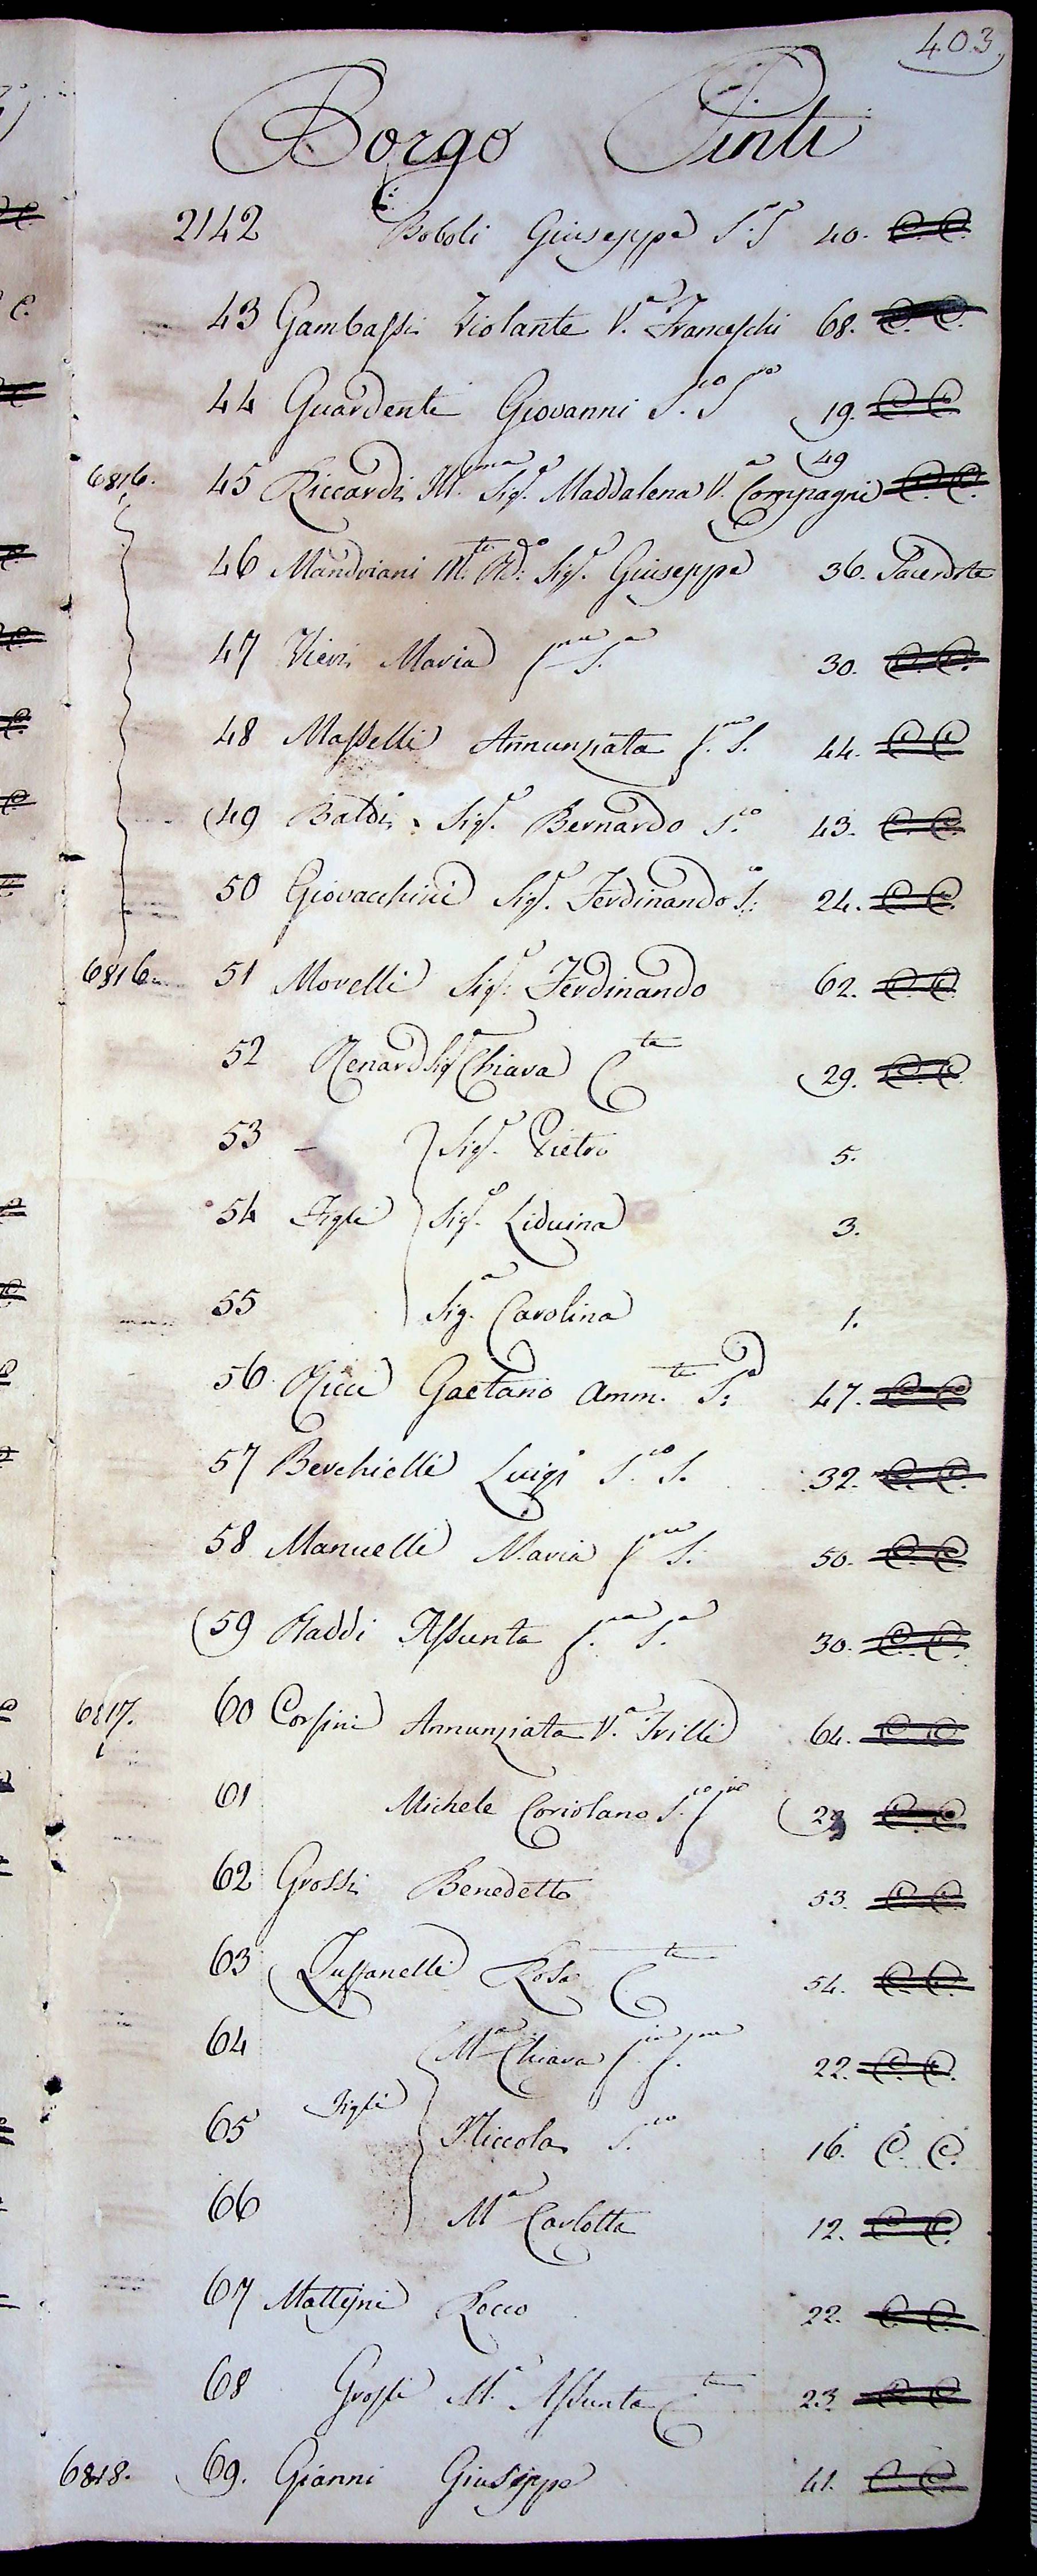 403
Borgo Pinti
2142 Boboli Giuseppe S.S 40. C. C.
43 Gambassi Violante V.a Franceschi 68. C. C.
44 Guardenti Giovanni S.co S.vo 19. C. C.
49
6816. 45 Riccardi Ill.ma Sig.a Maddalena V.a Compagni C. C.
46 Mandriani M.to R.do Sig.r Giuseppe 36. Sacerdote
47 Vieri Maria S.a 30. C. C.
48 Masselli Annunziata S. 44. C. C.
(49 Baldi Sig.r Bernardo S.co 43. C. C.
50 Giovacchini Sig.r Ferdinando S.co 24. C. C.
6816. 51 Morelli Sig.r Ferdinando 62. C. C.
52 Renard Sig.a Chiara C.ta 29. C. C.
53 - Sig.r Pietro 5.
54 Figli Sig.a Liduina 3.
55 Sig.a Carolina 1.
56 Ricci Gaetano Amm.to S. 47. C. C.
57 Berchielli Luigi S.co S. 32. C. C.
58 Manuelli Maria S. 50. C. C.
(59 Raddi Assunta S.a 30. C. C.
6817. 60 Corsini Annunziata V.a Frilli 64. C. C.
61 Michele Coriolano S.co 29 C. C.
62 Grossi Benedetto 53. C. C.
63 Zuffanelli Rosa C.ta 54. C. C.
64 M.a Chiara 22. C. C.
65 Figli Niccola S.co 16. C. C.
66 M.a Carlotta 12. C. C.
67 Mattejni Rocco 22. C. C.
68 Grossi M.a Assunta C.ta 23 C. C.
6818. 69. Gianni Giuseppe 41. C. C.